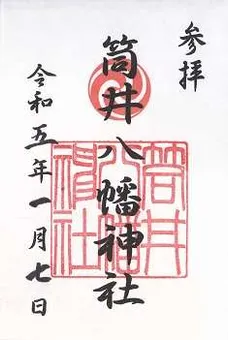 参拝
筒井八幡神社
筒井
八幡
神社
令和五年一月七日